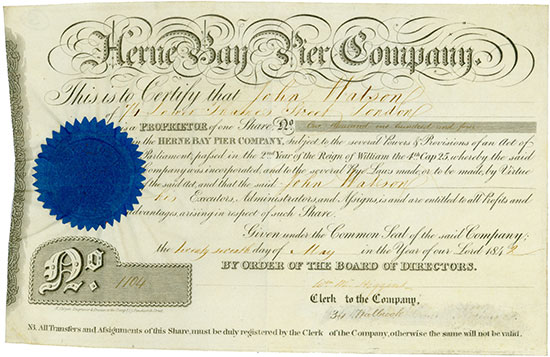 Herne Bay Pier Company.
This is to Certify that John Watson
of London
is a PROPRIETOR of one Share No. one hundred and four
in the HERNE BAY PIER COMPANY, subject to the several Powers & Provisions of an Act of
Parliament, passed in the 2nd Year of the Reign of William the 4th Cap 25, whereby the said
Company was incorporated, and to the several Bye Laws made, or to be made, by Virtue
of the said Act, and that the said John Watson
his Executors, Administrators, and Assigns, is and are entitled to all Profits and
Advantages, arising in respect of such Share.
Given under the Common Seal of the said Company,
the day of May in the Year of our Lord 184
BY ORDER OF THE BOARD OF DIRECTORS.
Clerk to the Company.
No. 1104
34 Walbrook
N.B. All Transfers and Assignments of this Share, must be duly registered by the Clerk of the Company, otherwise the same will not be valid.